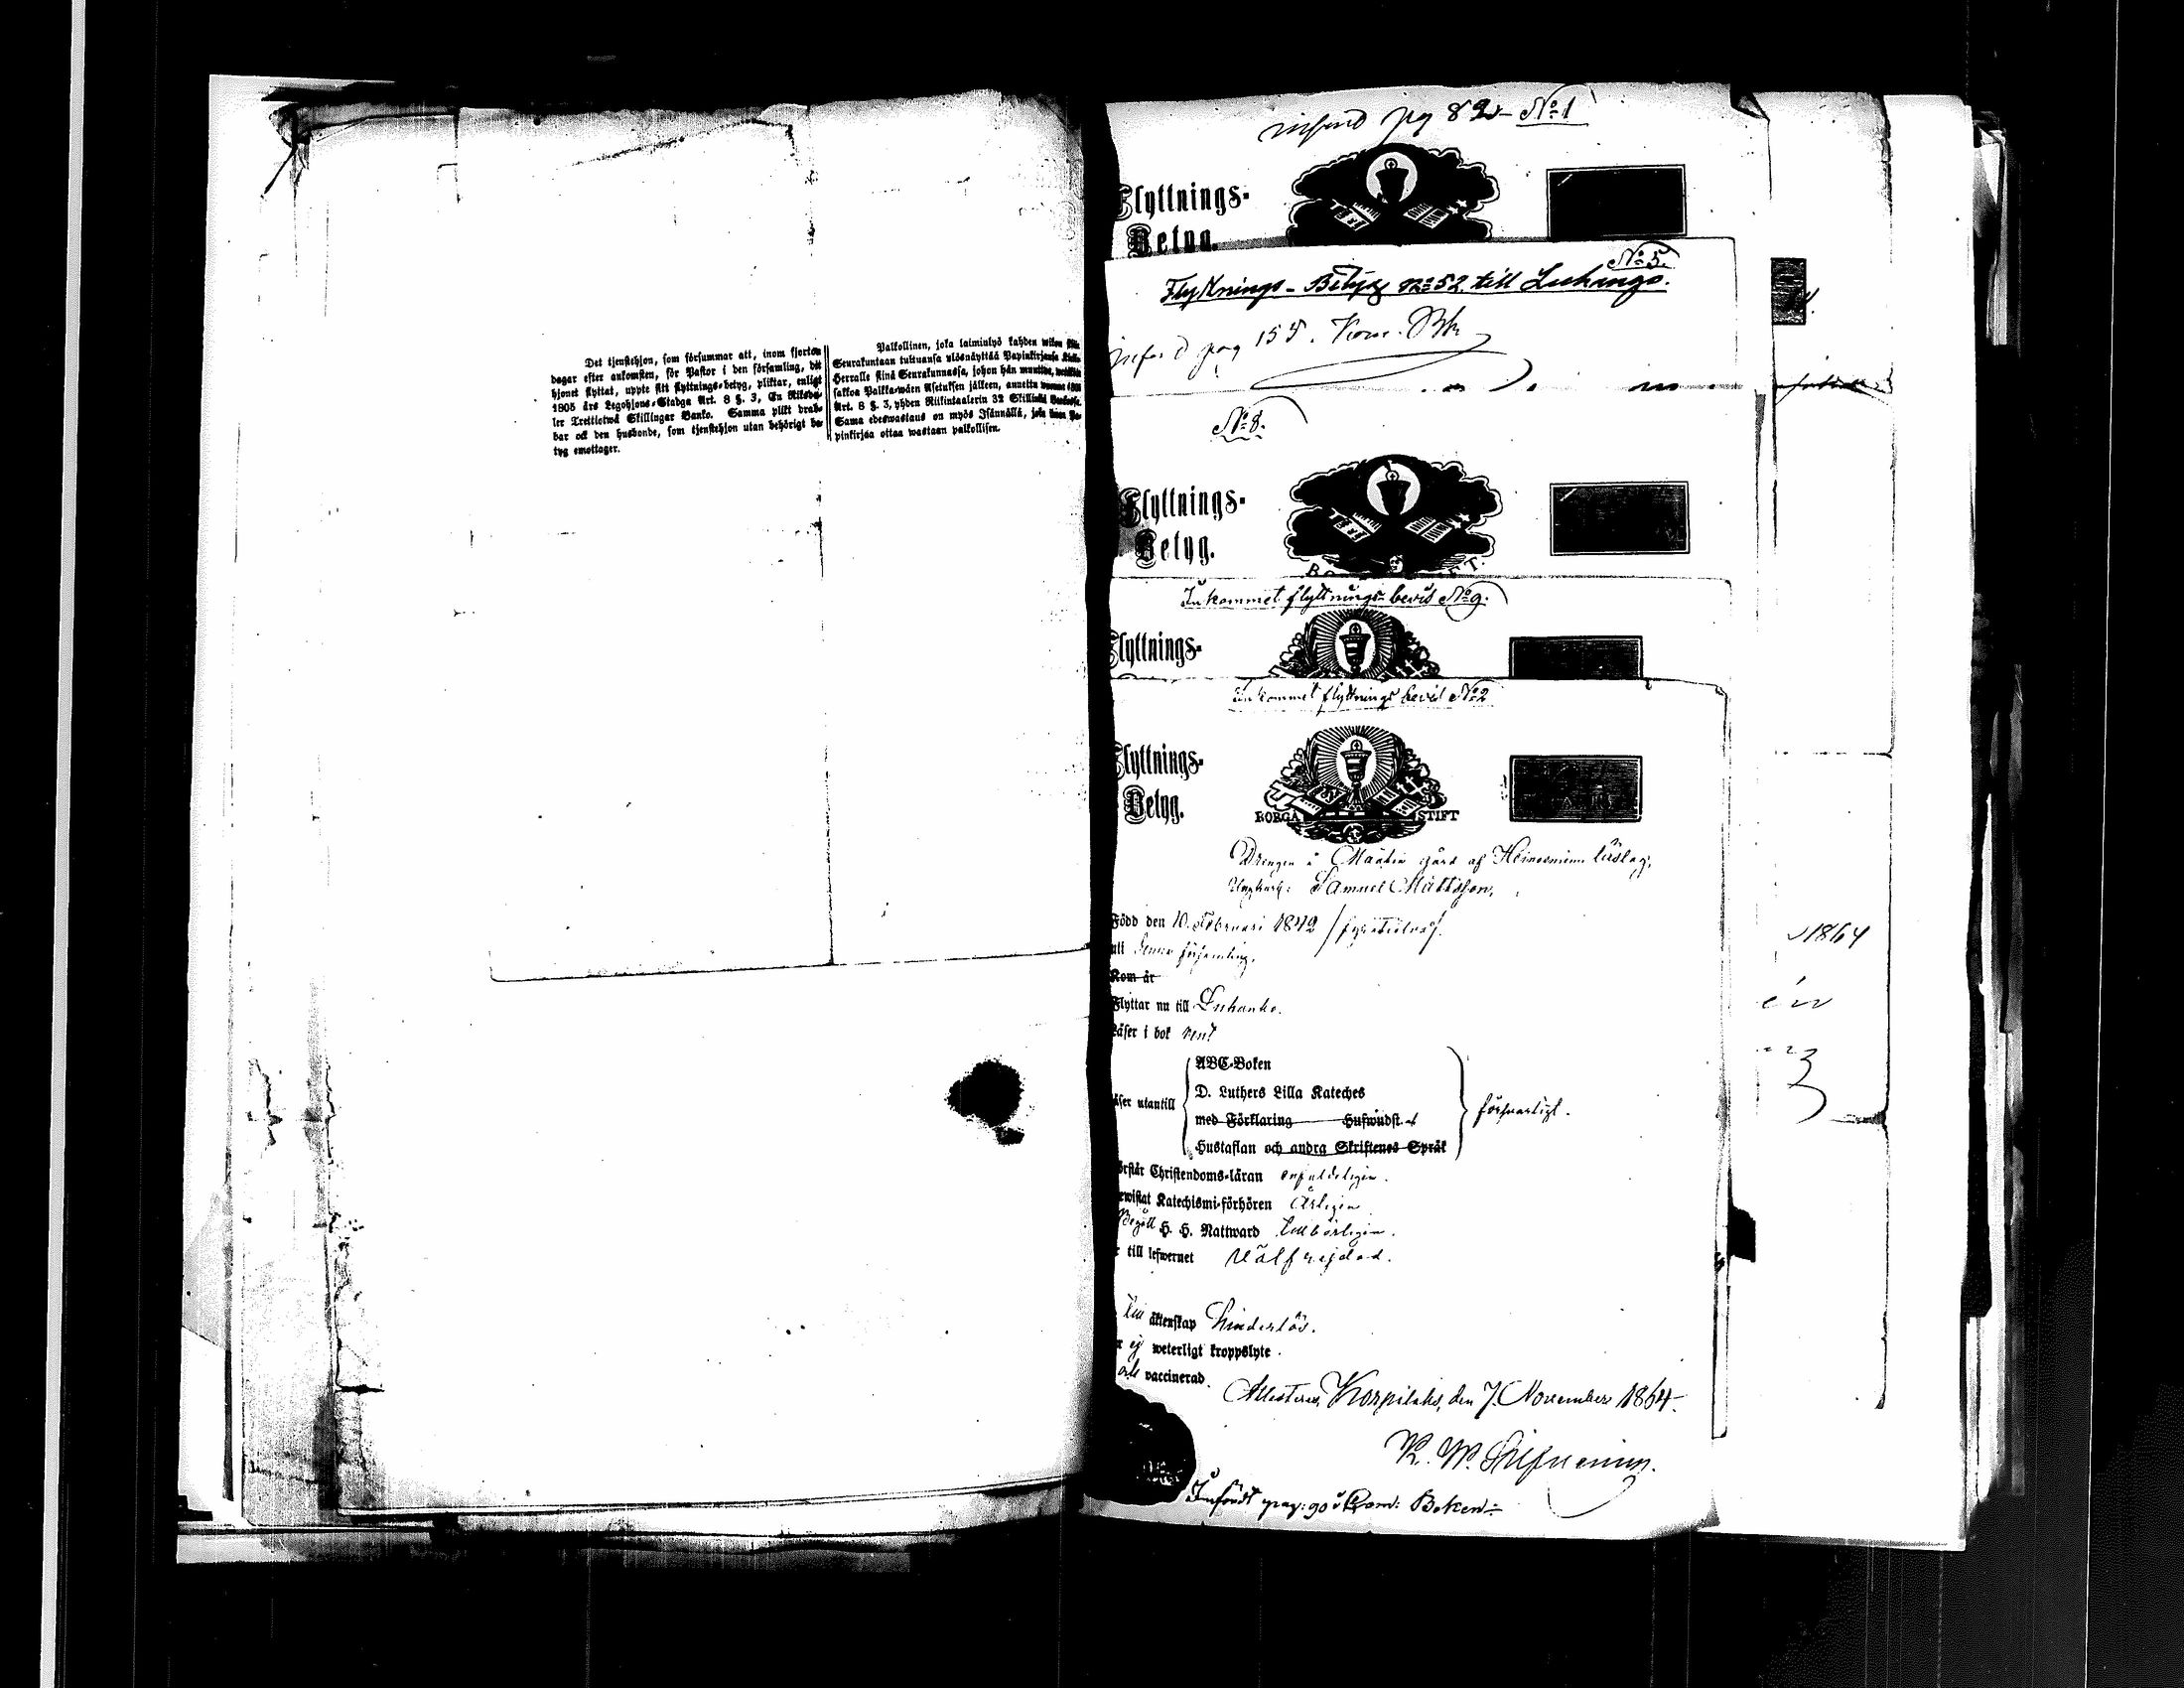 Det tjenstehjon, som försummar att, inom fjorton
dagar efter ankomsten, för Pastor i den församling, dit
hjonet flyttat, uppte sitt flyttnings-betyg, pliktar, enligt
1805 års Legohjons-Stadga Art. 8 §. 3, En Riksda-
ler Trettiotwå Skillingar Banko. Samma plikt drab-
bar ock den husbonde, som tjenstehjon utan behörigt be-
tyg emottager.
Palkollinen, joka laiminlyö kahden wiikon
Seurakuntaan tultuansa ylösnäyttää Papinkirjansa
Herralle siinä Seurakunnassa, johon hän
sakkoa Palkka-wäen Asetuksen jälkeen, annettu wuonna 1805
Art. 8 §. 3, yhden Riikintaalerin 32 Skillinkiä
Sama edeswastaus on myös Isännällä, joka ilman Pa-
pinkirjaa ottaa wastaan palkollisen.
införd pag 82 No 1
Flyttnings-
Betyg.
No 5.
Flyttnings-Betyg No 52 till Luhango.
införd pag 155. Kom. Bk
No 8.
Flyttnings-
Betyg.
Inkommet flyttnings-bevis No 9.
Flyttnings-
Inkommet flyttnings bevis No 2
Flyttnings-
Betyg.
BORGÅ STIFT
Drengen å Maatin gård af Heinosniemi läslag,
Ungkarl: Samuel Mattsson,
Född den 10. Februari 1842
i denna församling,
Kom år
Flyttar nu till Luhanko.
Läser i bok rent
ABC-Boken
D. Luthers Lilla Kateches
Läser utantill
med Förklaring Hufwudst.
försvarligt.
Hustaflan och andra Skriftenes Språk
Förstår Christendoms-läran enfaldeligen.
Bewistat Katechismi-förhören Årligen
Begått H. H. Nattward tillbörligen.
till lefwernet välfrejdad.
äktenskap hinderlös.
ej weterligt kroppslyte.
vaccinerad.
Attesteras, Korpilaks, den 7. November 1864.
K. W.
Infördt pag: 90 i Kom: Boken
1864